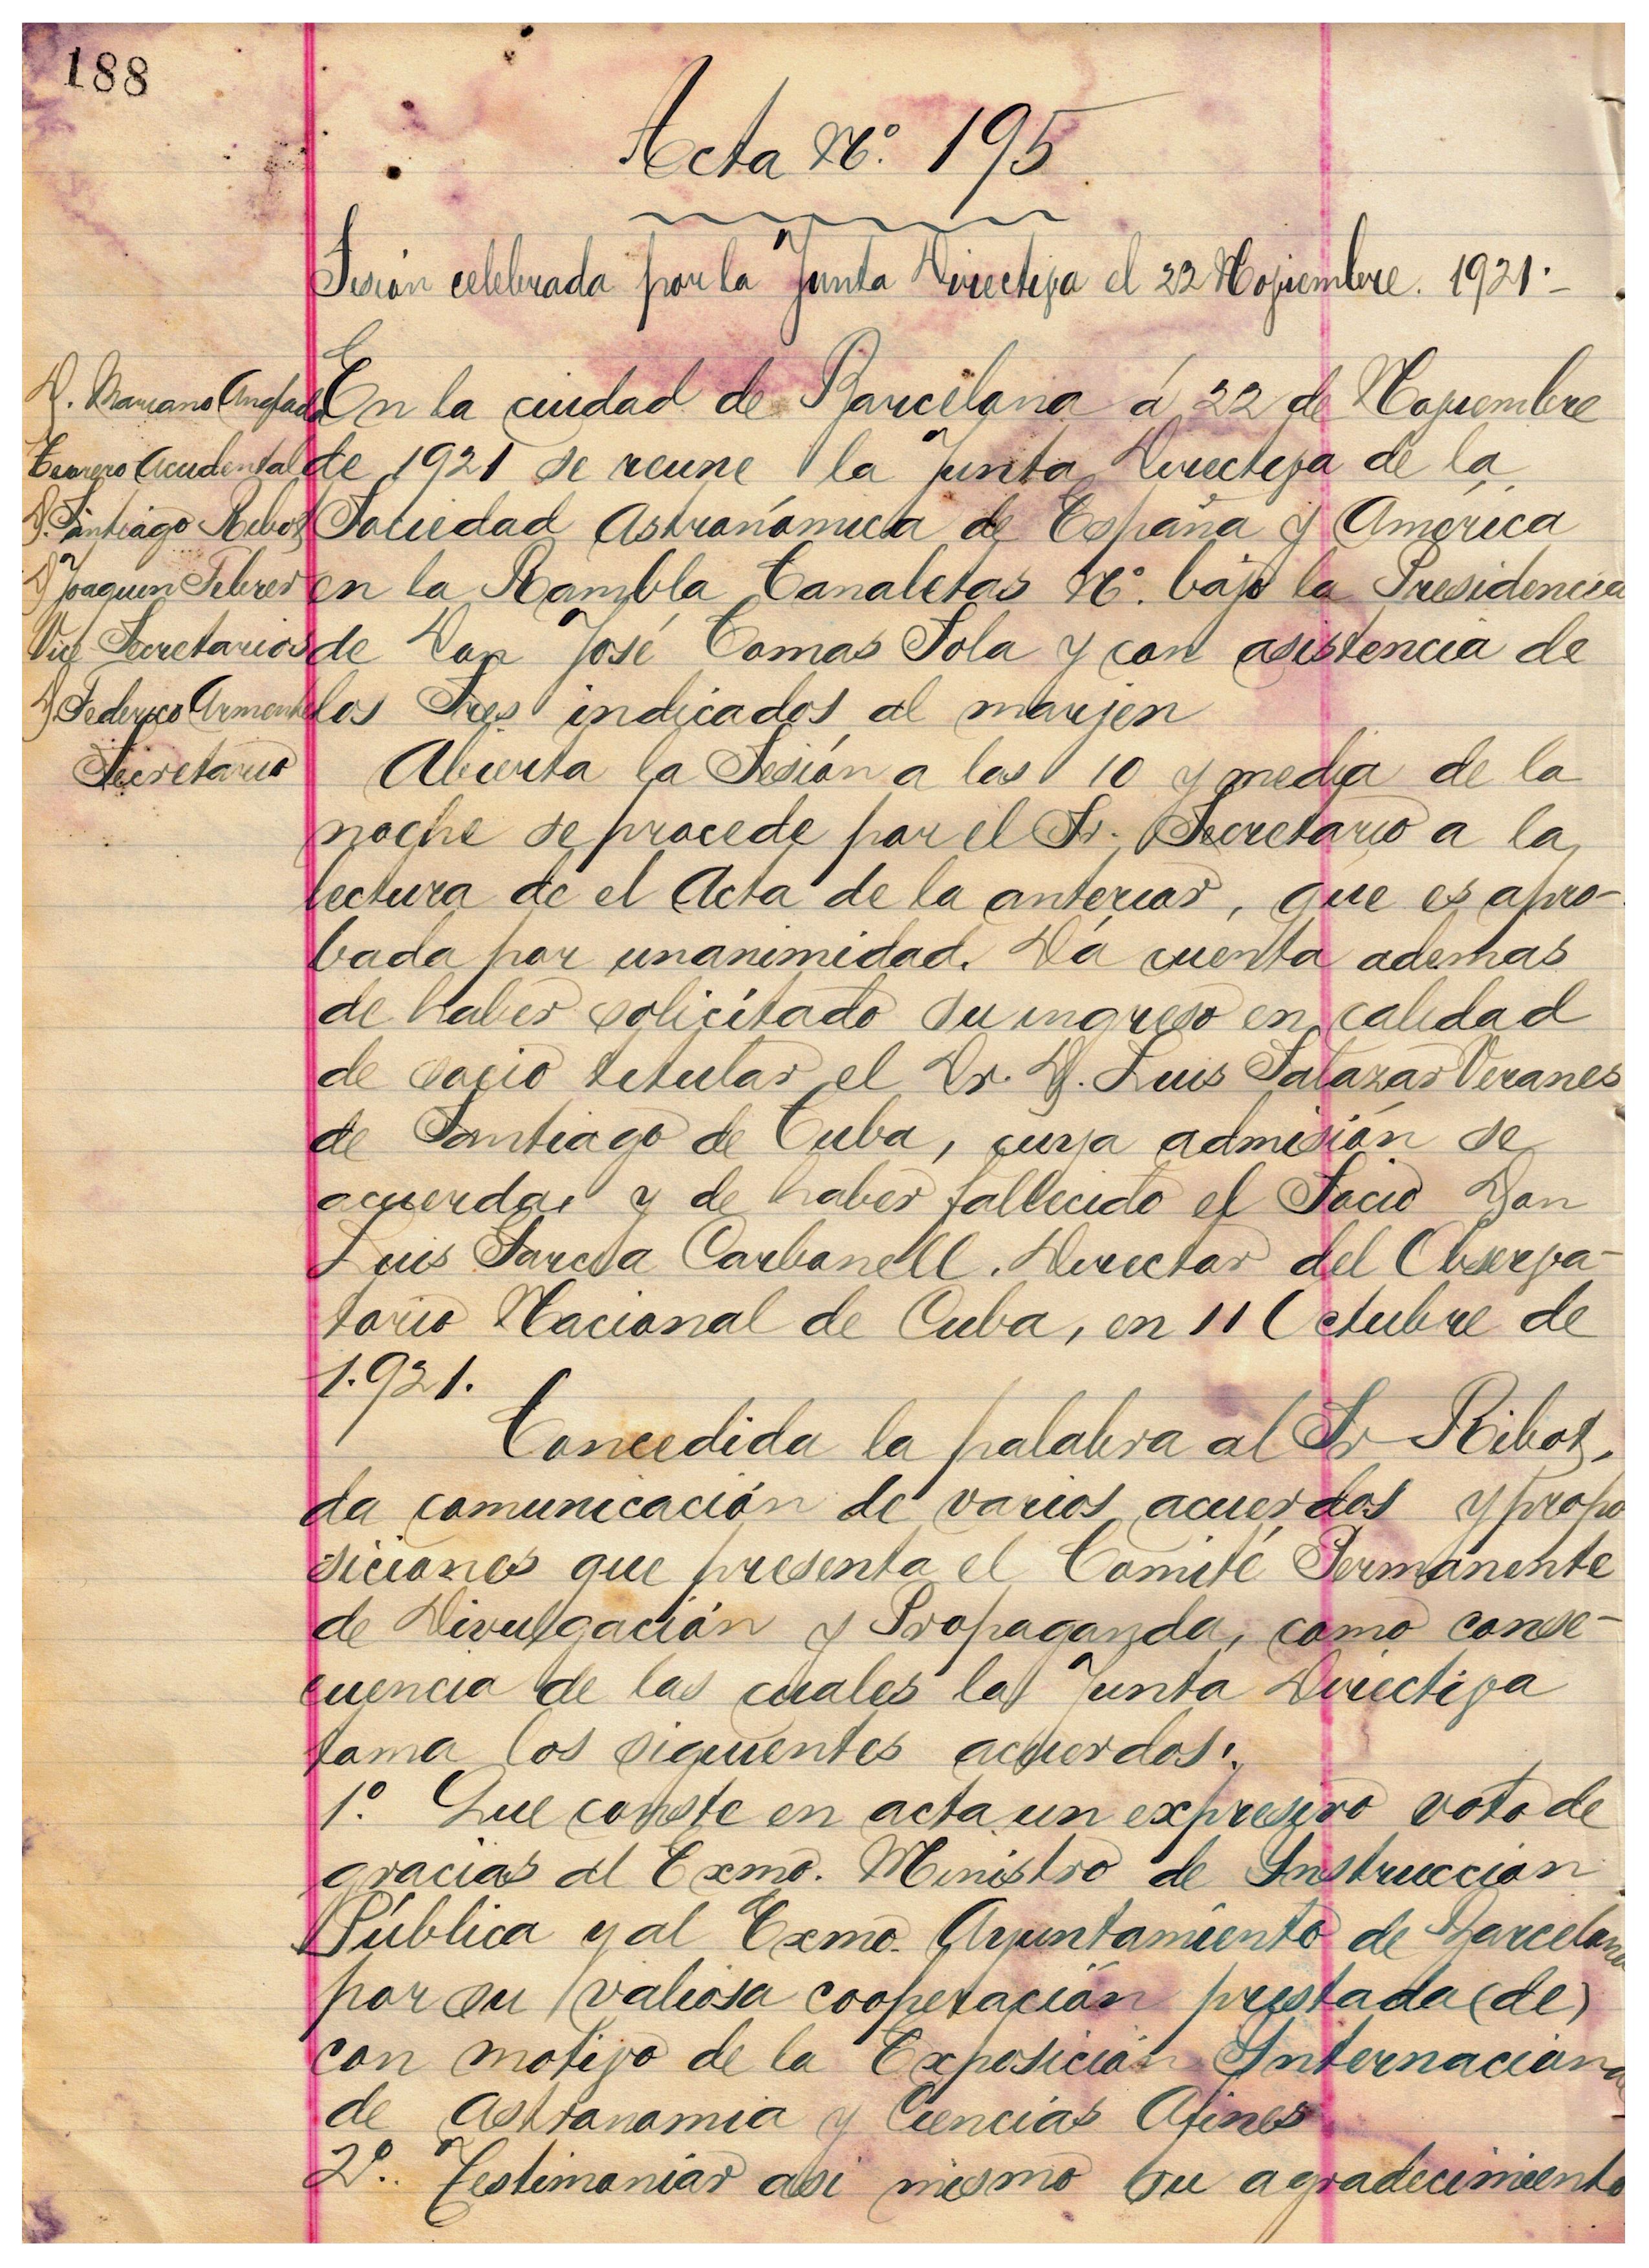 188
Acta Nº. 195
Sesión celebrada por la Junta Directiva el 22 Noviembre. 1921.-
D. Mariano Anglada
Tesorero Accidental
D. Santiago Ribot
D. Joaquin Febrer
Vice Secretarios
D. Federico Armenter
Secretario
En la ciudad de Barcelona á 22 de Noviembre
de 1921 se reune la Junta Directiva de la
Sociedad Astronómica de España y América
en la Rambla Canaletas Nº. bajo la Presidencia
de Don José Comas Sola y con asistencia de
los Sres indicados al marjen
Abierta la Sesión a las 10 y media de la
noche se procede por el Sr. Secretario a la
lectura de el Acta de la anterior, que es apro-
bada por unanimidad. Dá cuenta ademas
de haber solicitado su ingreso en calidad
de socio titular el Dr. D. Luis Salazar Veranes
de Santiago de Cuba, cuya admisión se
acuerda, y de haber fallecido el Socio Don
Luis Garcia Carbonell. Director del Observa-
torio Nacional de Cuba, en 11 Octubre de
1.921.
Concedida la palabra al Sr Ribot,
da comunicación de varios acuerdos y propo
siciones que presenta el Comité Permanente
de Divulgación y Propaganda, como conse-
cuencia de las cuales la Junta Directiva
toma los siguientes acuerdos:
1º. Que conste en acta un expresivo voto de
gracias al Exmo. Ministro de Instruccion
Pública y al Exmo. Ayuntamiento de Barcelona
por su valiosa cooperación prestada (de)
con motivo de la Exposición Internaciona
de Astronomia y Ciencias Afines
2º.. Testimoniar asi mismo su agradecimiento